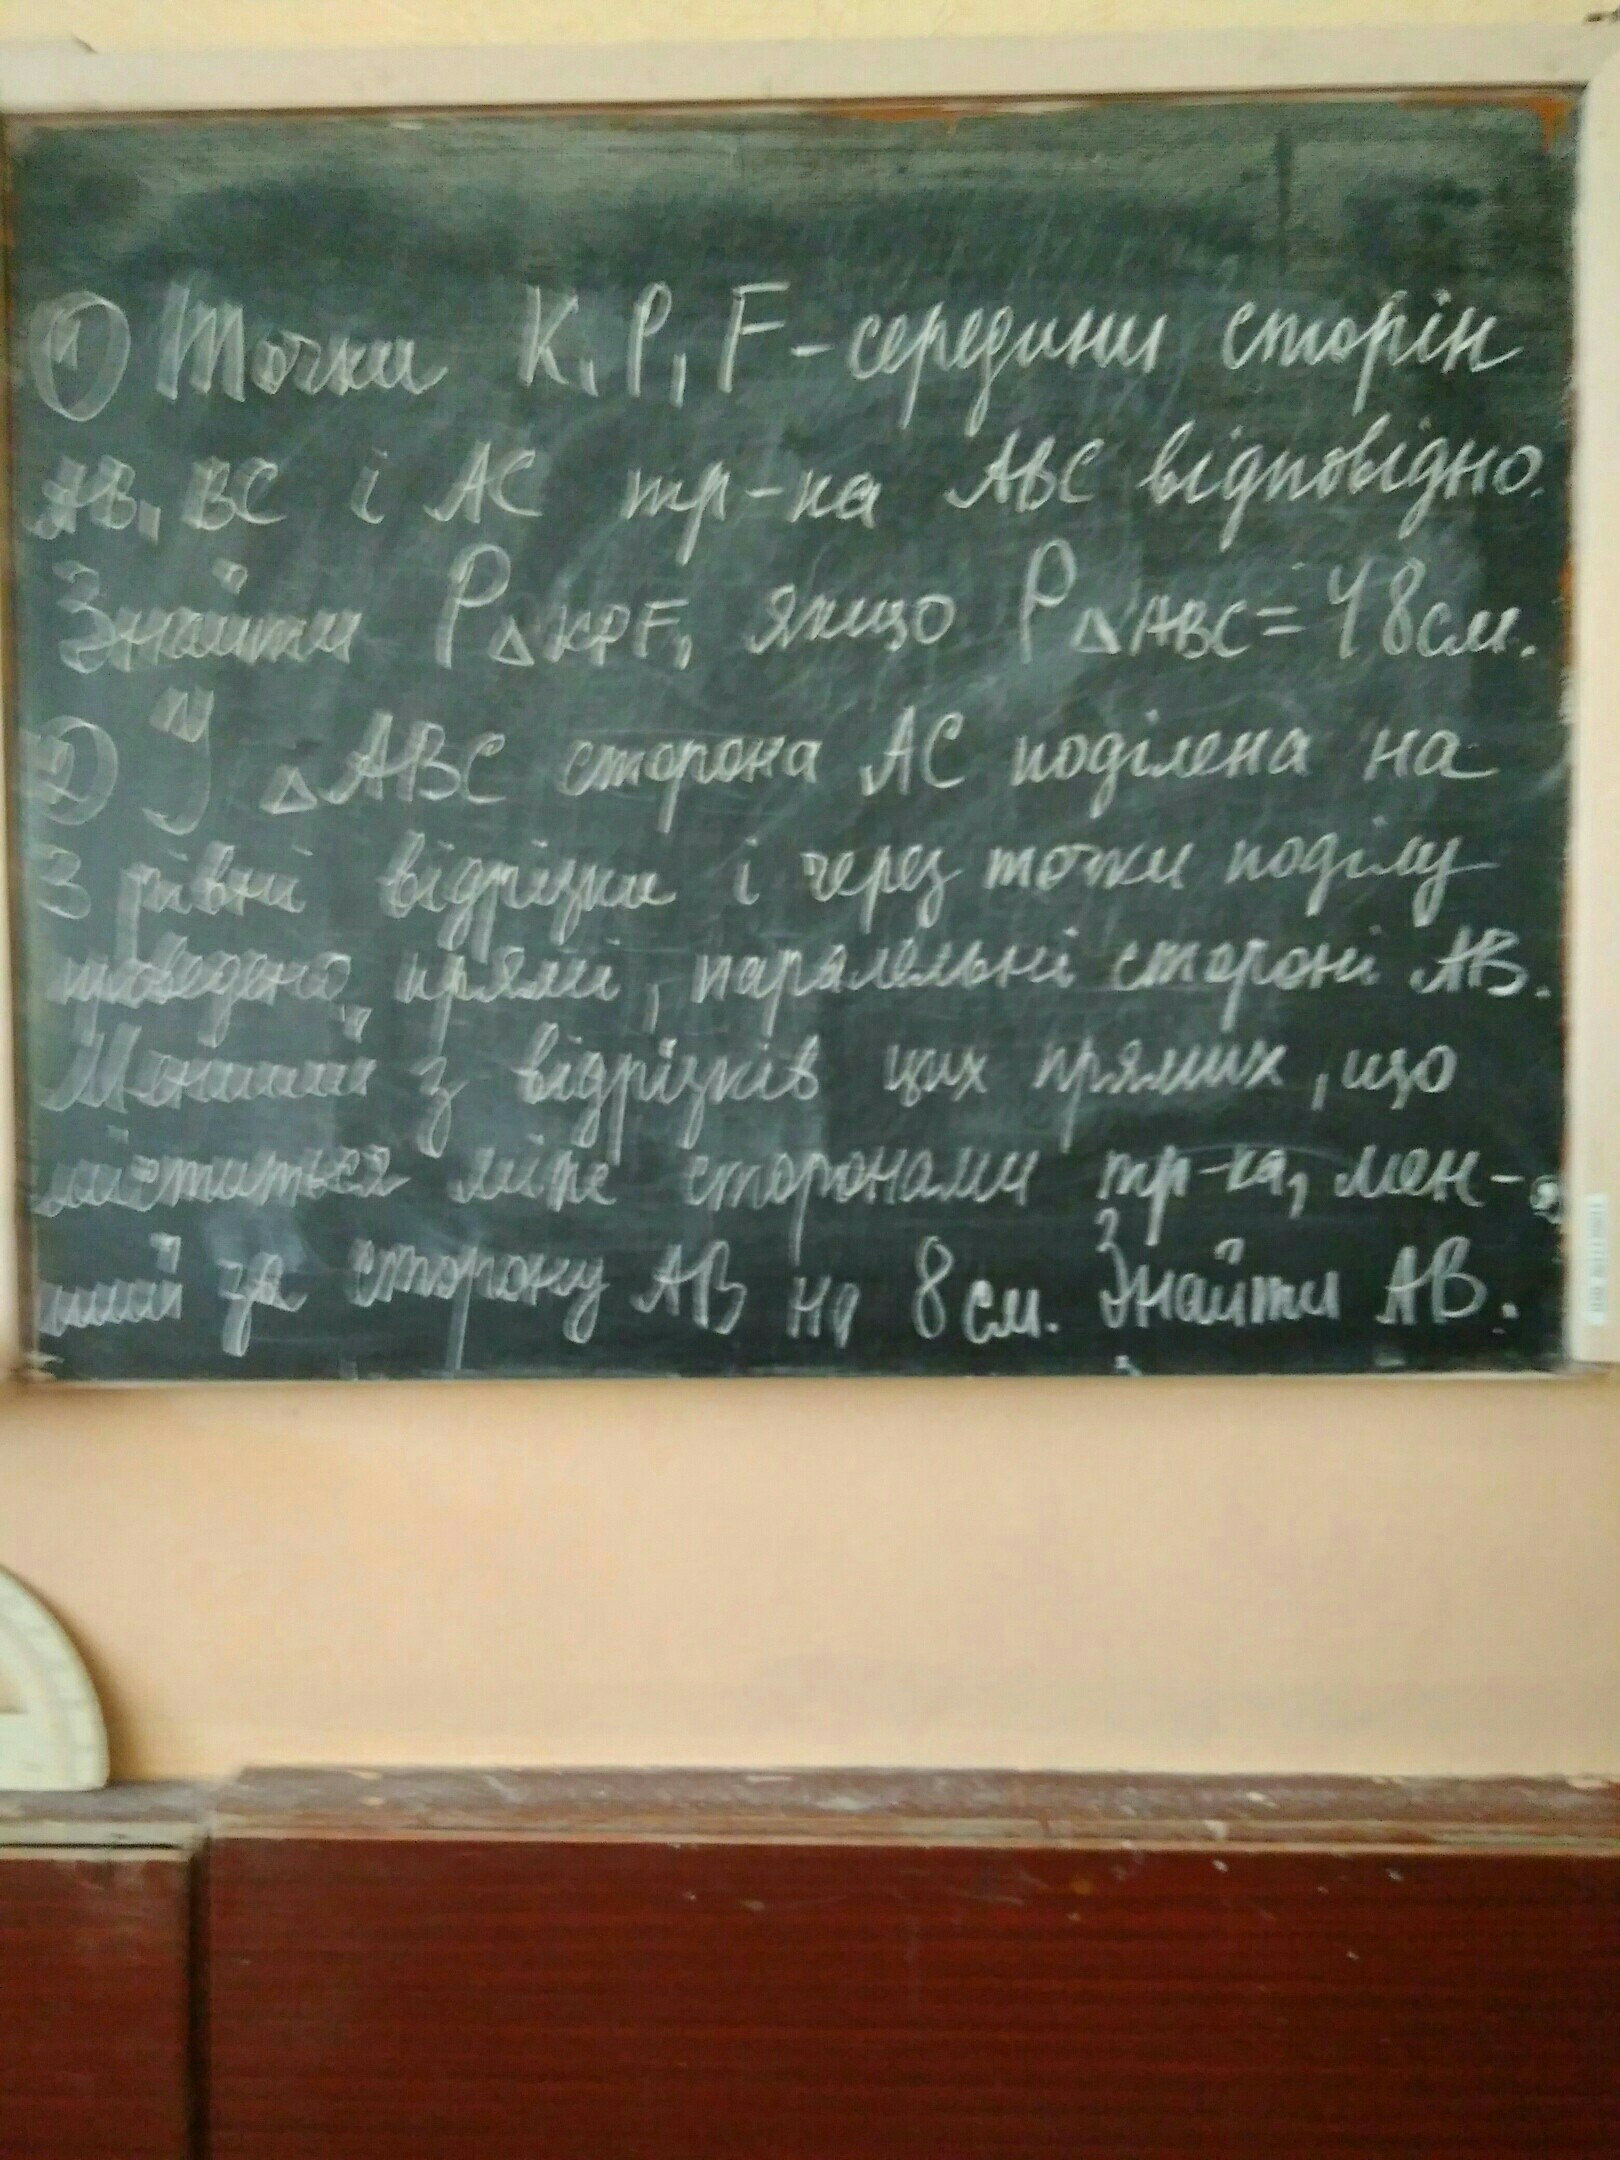 ① Точки K, P, F - середини сторін
AB, BC і AC тр-ка ABC відповідно.
Знайти P△KPF, якщо P△ABC = 48 см.
② У △ABC сторона AC поділена на
3 рівні відрізки і через точки поділу
проведено прямі, паралельні стороні AB.
Менший з відрізків цих прямих, що
міститься між сторонами тр-ка, мен-
ший за сторону AB на 8 см. Знайти AB.